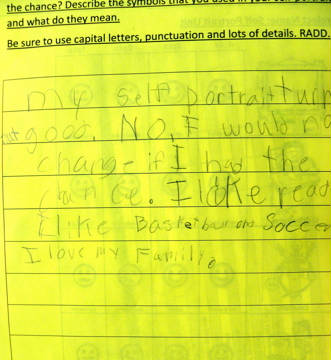 the chance? Describe the symbols that you used in your self portrait
and what do they mean.
Be sure to use capital letters, punctuation and lots of details. RADD.
my self portrait turn
out good. NO, I would no
change if I had the
chance. I like read
I like Basketball and Soccer
I love my Family.